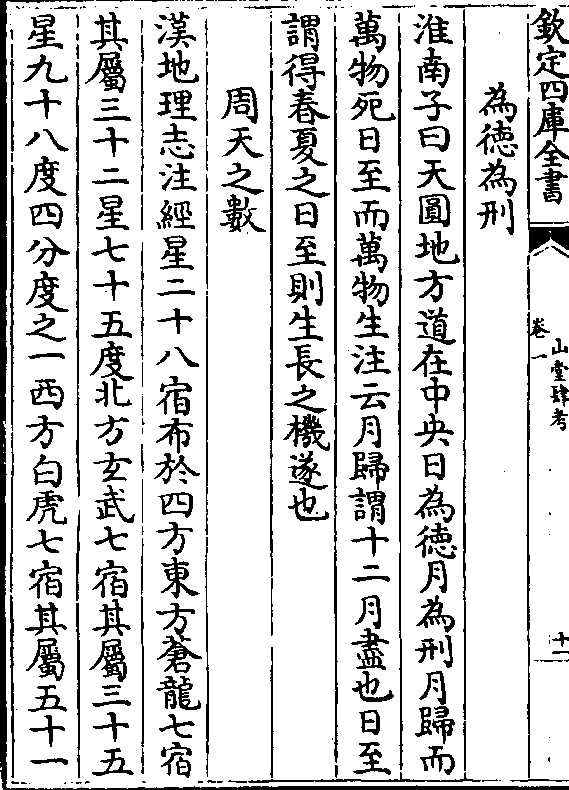 欽定四庫全書
山堂肆考
卷一
十一
為徳為刑
淮南子曰天圓地方道在中央日為徳月為刑月歸而
萬物死日至而萬物生注云月歸謂十二月盡也日至
謂得春夏之日至則生長之機遂也
周天之數
漢地理志注經星二十八宿布於四方東方蒼龍七宿
其屬三十二星七十五度北方玄武七宿其屬三十五
星九十八度四分度之一西方白虎七宿其屬五十一